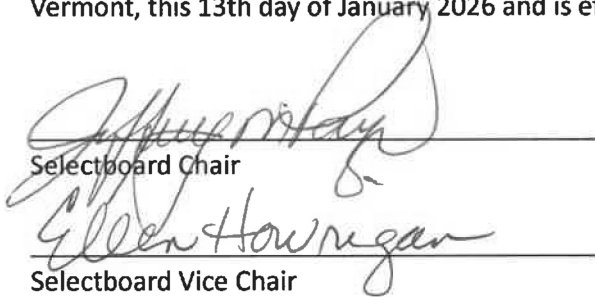 Vermont, this 13th day of January 2026 and is e
Selectboard Chair
Ellen Howrigan
Selectboard Vice Chair